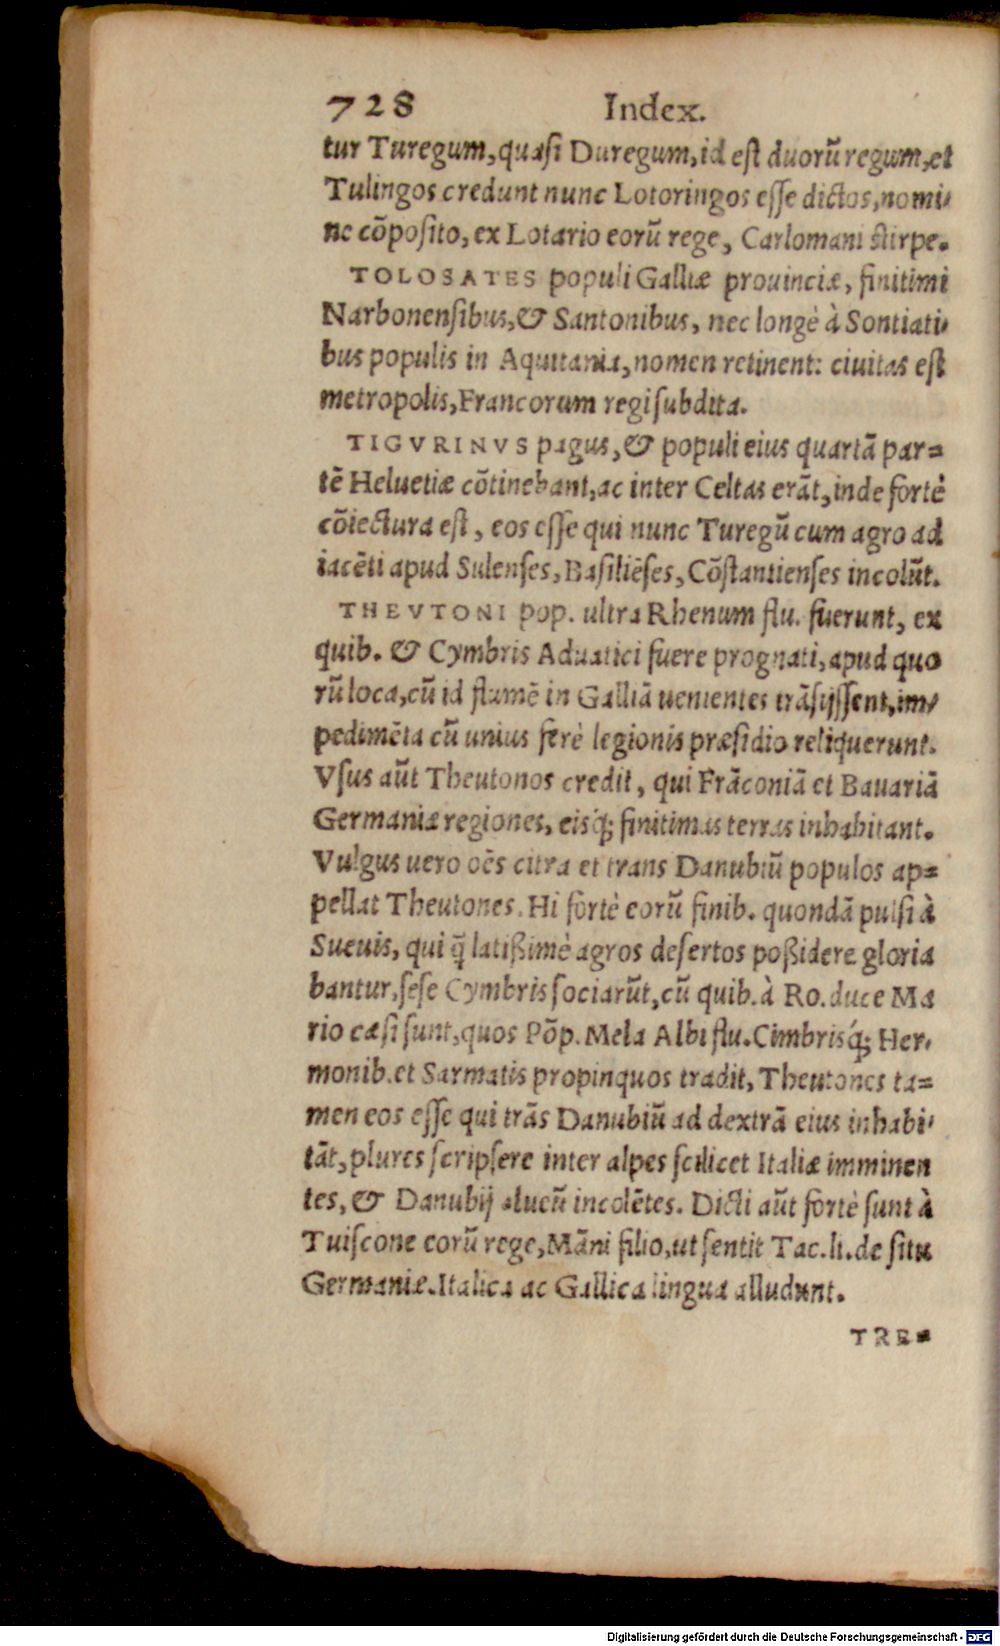 728 Index.
tur Turegum, quasi Duregum, id est duorũ regum, et
Tulingos credunt nunc Lotoringos esse dictos, nomi-
ne cõposito, ex Lotario eorũ rege, Carlomani stirpe.
TOLOSATES populi Galliæ prouinciæ, finitimi
Narbonensibus, & Santonibus, nec longè à Sontiati-
bus populis in Aquitania, nomen retinent: ciuitas est
metropolis, Francorum regi subdita.
TIGVRINVS pagus, & populi eius quartã par=
tẽ Heluetiæ cõtinebant, ac inter Celtas erãt, inde fortè
cõiectura est, eos esse qui nunc Turegũ cum agro ad
iacẽti apud Sulenses, Basiliẽses, Cõstantienses incolũt.
THEVTONI pop. ultra Rhenum flu. fuerunt, ex
quib. & Cymbris Aduatici fuere prognati, apud quo
rũ loca, cũ id flumẽ in Galliã uenientes trãsijssent, im-
pedimẽta cũ unius ferè legionis præsidio reliquerunt.
Vsus aũt Theutonos credit, qui Frãconiã et Bauariã
Germaniæ regiones, eisq́; finitimas terras inhabitant.
Vulgus uero oẽs citra et trans Danubiũ populos ap=
pellat Theutones. Hi fortè eorũ finib. quondã pulsi à
Sueuis, qui q̃ latißimè agros desertos poßidere gloria
bantur, sese Cymbris sociarũt, cũ quib. à Ro. duce Ma
rio cæsi sunt, quos Põp. Mela Albi flu. Cimbrisq́; Her-
monib. et Sarmatis propinquos tradit, Theutones ta=
men eos esse qui trãs Danubiũ ad dextrã eius inhabi-
tãt, plures scripsere inter alpes scilicet Italiæ imminen
tes, & Danubij alueũ incolẽtes. Dicti aũt fortè sunt à
Tuiscone eorũ rege, Mãni filio, ut sentit Tac. li. de situ
Germaniæ. Italica ac Gallica lingua alludunt.
TRE=
Digitalisierung gefördert durch die Deutsche Forschungsgemeinschaft - DFG